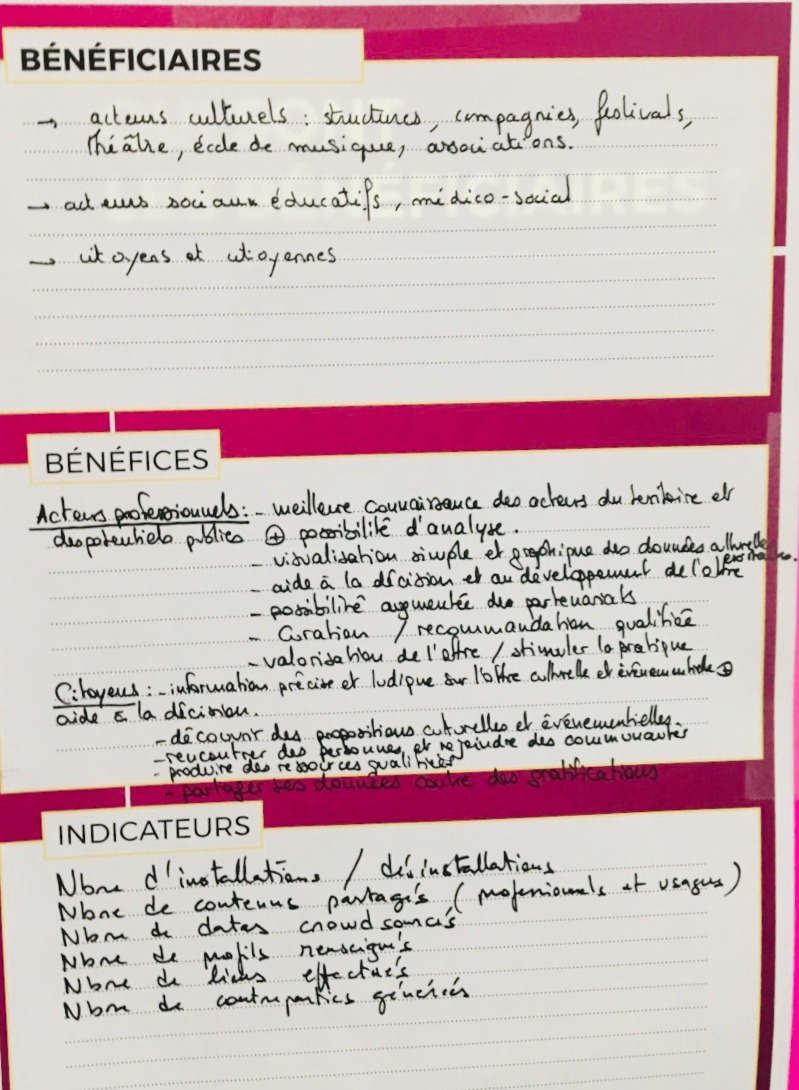 BÉNÉFICIAIRES
→ acteurs culturels : structures, compagnies, festivals,
théâtre, école de musique, associations.
→ acteurs sociaux éducatifs, médico-social
→ citoyens et citoyennes
BÉNÉFICES
Acteurs professionnels : - meilleure connaissance des acteurs du territoire et
des potentiels publics ⊕ possibilité d'analyse.
- visualisation simple et graphique des données culturelles
- aide à la décision et au développement de l'offre
- possibilité augmentée des partenariats
- Curation / recommandation qualifiée
- valorisation de l'offre / stimuler la pratique
Citoyens : - information précise et ludique sur l'offre culturelle et événementielle ⊕
aide à la décision.
- découvrir des propositions cuturelles et événementielles.
- rencontrer des personnes et rejoindre des communautés
- produire des ressources qualifiées
- partager ses données contre des gratifications
INDICATEURS
Nbre d'installations / désinstallations
Nbre de contenus partagés (professionnels et usagers)
Nbre de datas crowdsourcés
Nbre de profils renseignés
Nbre de liens effectués
Nbre de contreparties générées